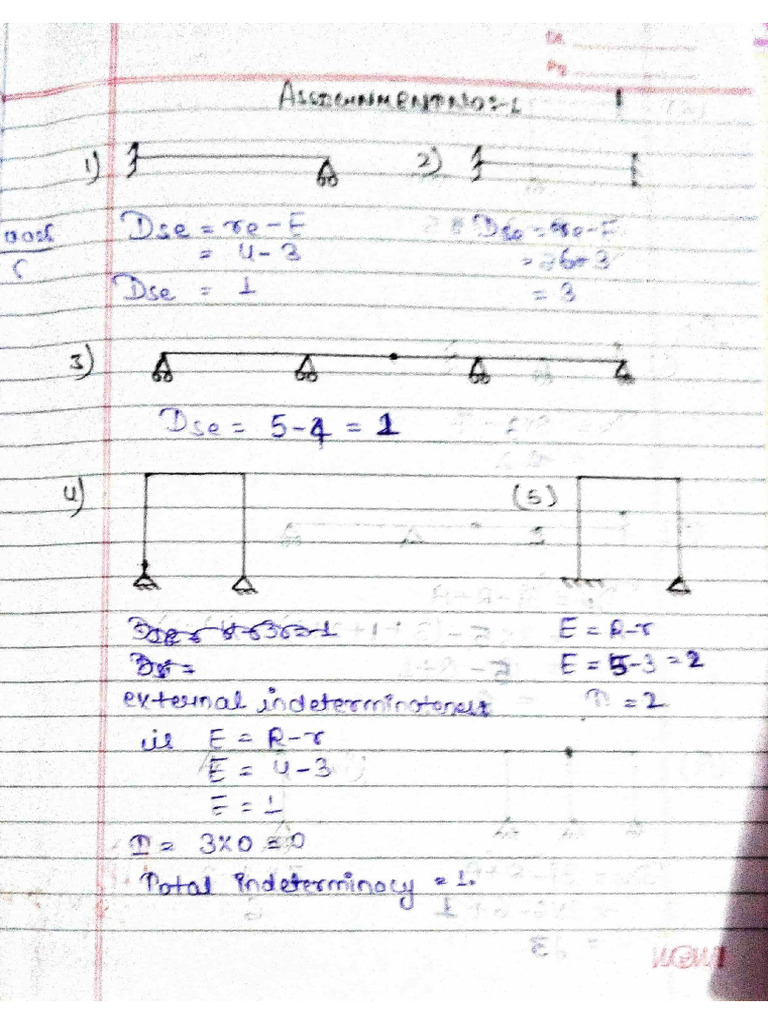 Dt.
Pg.
ASSIGNMENT NO:-1
1) 2)
Dse = re-E
= 4-3
Dse = 1
Dse = re-E
= 6-3
= 3
3)
Dse = 5-4 = 1
4) (5)
external indeterminateness
is E = R-r
E = 4-3
E = 1
I = 3x0 = 0
Total indeterminacy = 1.
E = R-r
E = 5-3 = 2
= 2